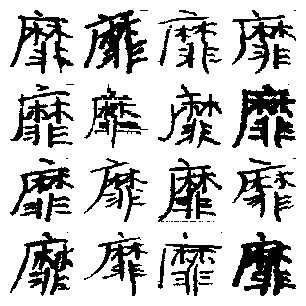 靡靡靡靡
靡靡靡靡
靡靡靡靡
靡靡靡靡